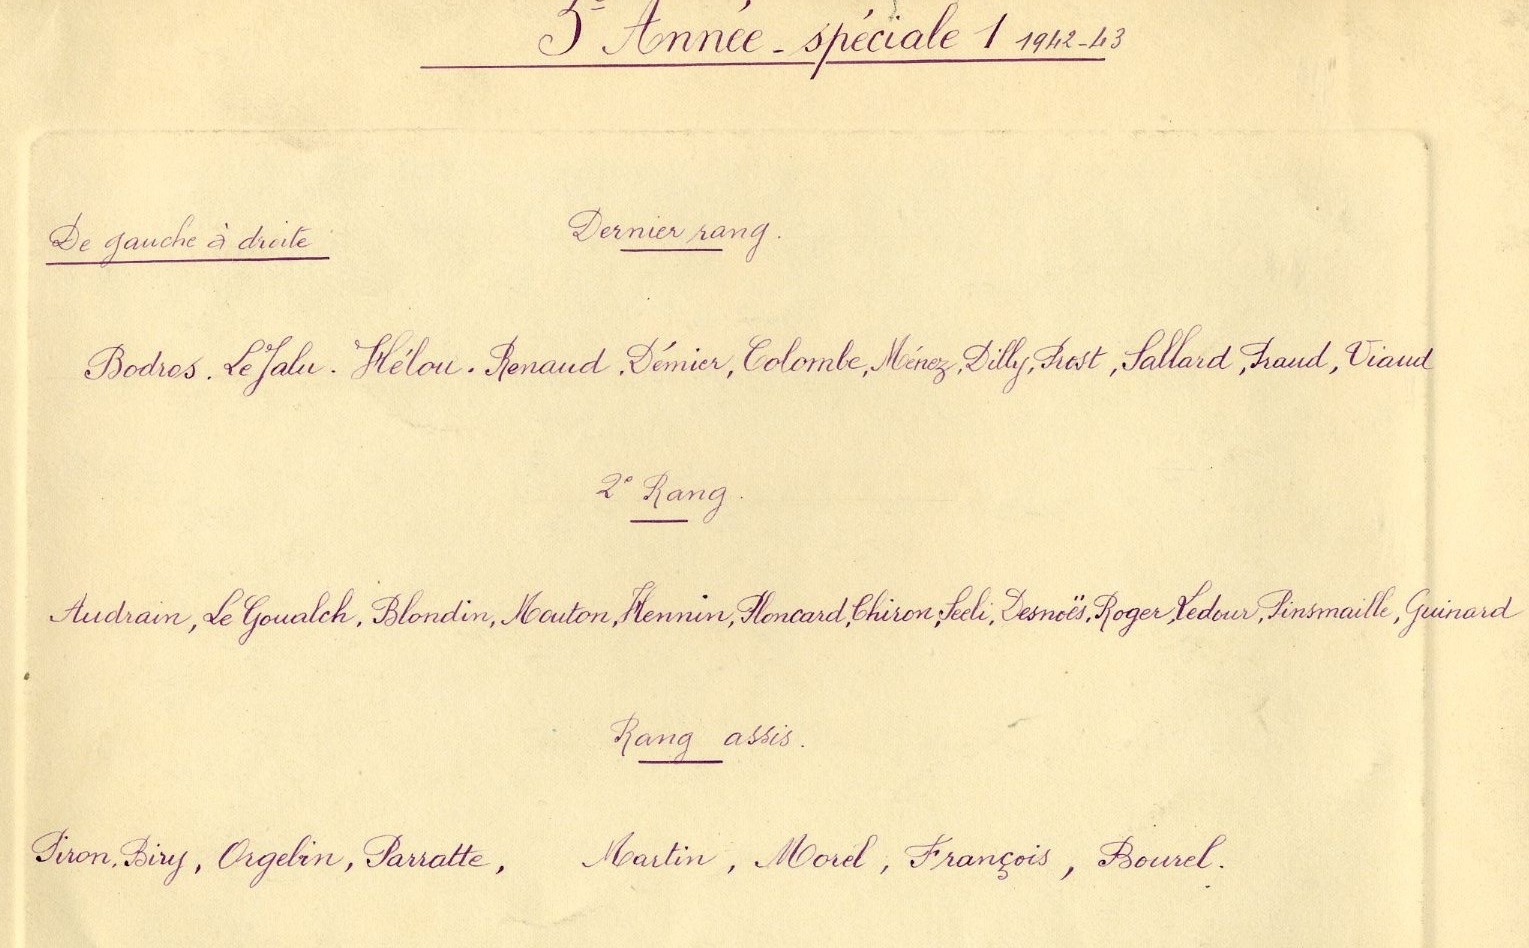 3e Année - spéciale 1 1942-43
De gauche à droite
Dernier rang.
Bodros. Le Jalu. Hélou. Renaud, Démier, Colombe, Ménez, Dilly, Prost, Sallard, Fraud, Viaud
2e Rang.
Audrain, Le Goualch, Blondin, Mouton, Hennin, Floncard, Chiron, Seeli, Desnoës, Roger, Ledour, Pinsmaille, Guinard
Rang assis.
Piron, Biry, Orgebin, Parratte, Martin, Morel, François, Bourel.